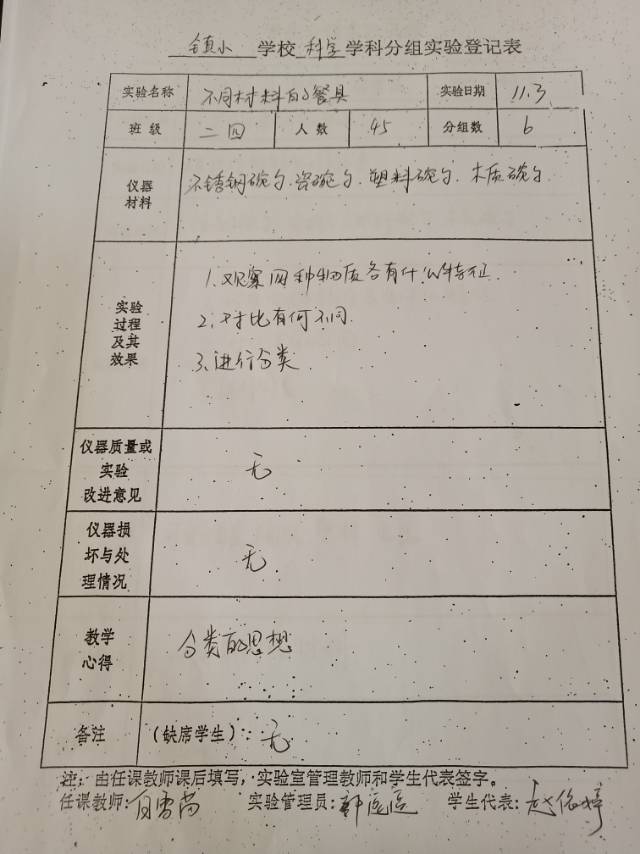 镇小 学校 科学 学科分组实验登记表
实验名称 不同材料的餐具 实验日期 11.3
班 级 二四 人 数 45 分组数 6
仪器
材料
不锈钢碗勺、瓷碗勺、塑料碗勺、木质碗勺
实验
过程
及其
效果
1、观察四种物质各有什么特征
2、对比有何不同
3、进行分类
仪器质量或
实验
改进意见
无
仪器损
坏与处
理情况
无
教学
心得
分类的思想
备注 （缺席学生）：无
注：由任课教师课后填写，实验室管理教师和学生代表签字。
任课教师： 实验管理员： 学生代表：